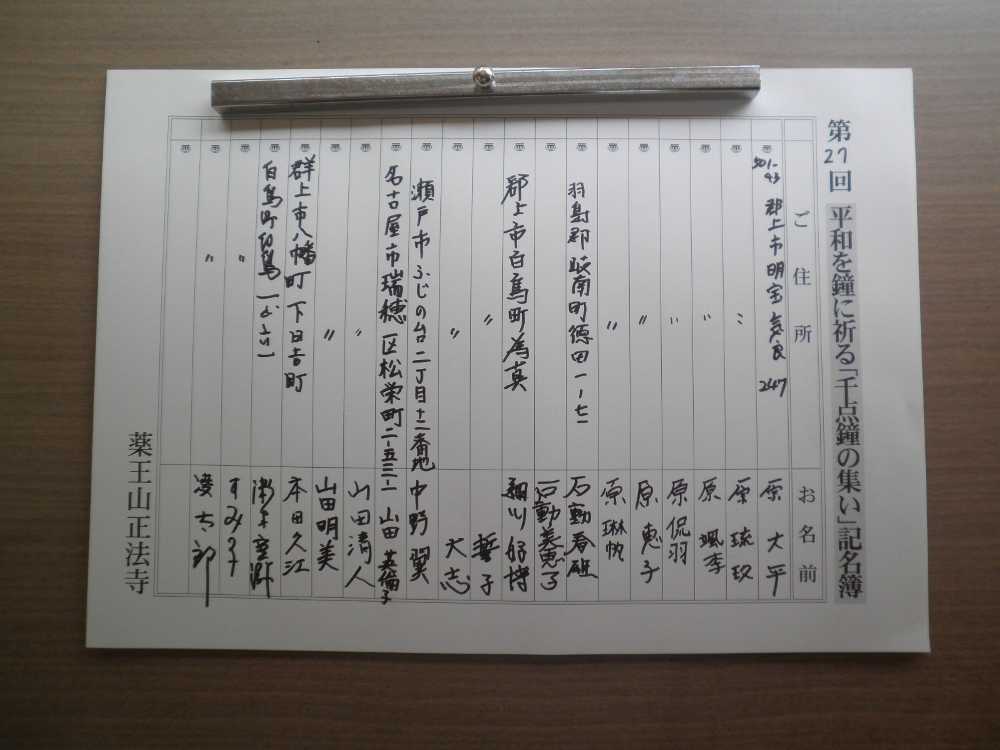 第27回 平和を鐘に祈る「千点鐘の集い」記名簿
ご住所 お名前
〒501-43 郡上市明宝気良247 原大平
〒 〃 原琉玖
〒 〃 原颯季
〒 〃 原侃羽
〒 〃 原恵子
〒 〃 原琳
〒羽島郡岐南町徳田一ー七一 石動春
〒 石動美恵子
〒郡上市白鳥町為真 細川好博
〒 〃 誓子
〒 〃 大志
〒瀬戸市ふじの台二丁目十二番地 中野翼
〒名古屋市瑞穂区松栄町二-五三-一 山田美倫子
〒 〃 山田清人
〒 〃 山田明美
〒群上市八幡町下日吉町 本田久江
〒白鳥町白鳥
〒 〃 すみ子
〒 〃 凌太郎
〒
薬王山正法寺